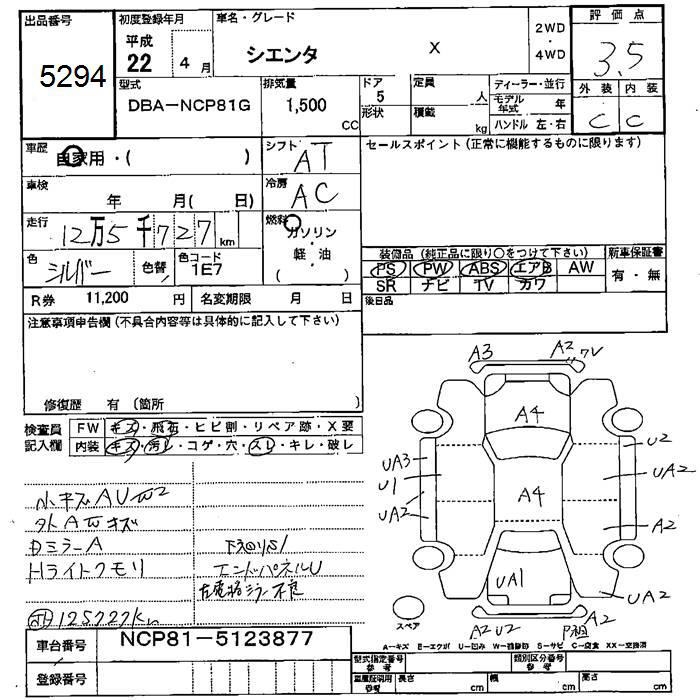 出品番号 初度登録年月 車名・グレード 2WD・4WD 評価点
5294 平成 22 4月 シエンタ X 3.5
型式 排気量 ドア 定員 ディーラー・並行 外装 内装
DBA-NCP81G 1,500 CC 5 形状 積載 人 kg モデル年式 年 ハンドル 左・右 C C
車歴 自家用・( ) シフト AT セールスポイント(正常に機能するものに限ります)
車検 年 月( 日) 冷房 AC
走行 12万5千727km 燃料 ガソリン・軽油 ( )
色 シルバー 色替 色コード 1E7
装備品(純正品に限り〇をつけて下さい) 新車保証書
PS PW ABS エアB AW 有・無
SR ナビ TV カワ
R券 11,200 円 名変期限 月 日 後日品
注意事項申告欄(不具合内容等は具体的に記入して下さい)
修復歴 有(箇所
検査員記入欄 FW キズ・飛石・ヒビ割・リペア跡・X要
内装 キズ・汚レ・コゲ・穴・スレ・キレ・破レ
A3 A2 7V
A4
UA3 U2
U1 UA2
UA2 A4 A2
UA1
UA2
スペア A2 U2 A2
小キズAU
外A キズ
Dミラー A
Hライトクモリ
エンドパネルU
左電格ミラー不良
125727km
A-キズ E-エクボ U-凹み W-補修跡 S-サビ C-腐食 XX-交換済
車台番号 NCP81-5123877
登録番号
型式指定番号 参考 類別区分番号 参考
車庫証明用 参考 長さ cm 幅 cm 高さ cm